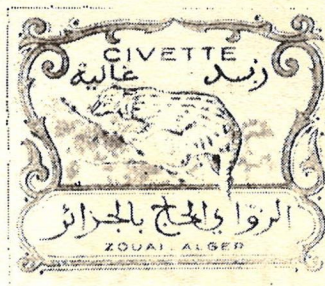 CIVETTE
زبد غالية
الزواي الحاج بالجزائر
ZOUAI. ALGER